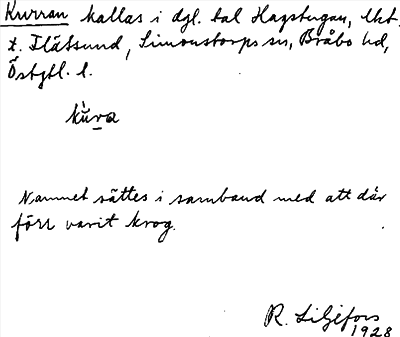 Kurran kallas i dgl. tal Hagstugan, lht.
t. Flätsund, Simonstorps sn, Bråbo hd,
Östgtl. l.
kùra
Namnet sättes i samband med att där
förr varit krog.
R. Liljefors
1928